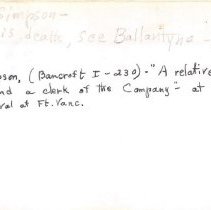 Simpson -
is death, see Ballantyne -
son, (Bancroft I - 230) - "A relative
nd a clerk of the Company" - at
val at Ft. Vanc.